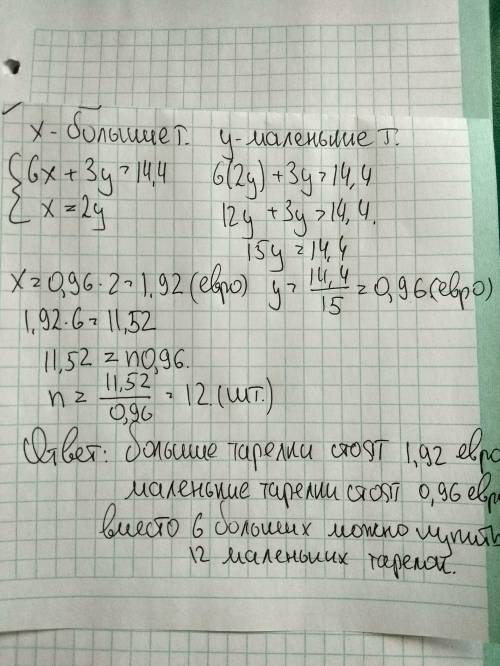 x - большие т. y - маленькие т.
{ 6x + 3y = 14,4 6(2y) + 3y = 14,4
x = 2y 12y + 3y = 14,4.
15y = 14,4
x = 0,96 · 2 = 1,92 (евро) y = 14,4/15 = 0,96 (евро)
1,92 · 6 = 11,52
11,52 = n0,96.
n = 11,52/0,96 = 12. (шт.)
Ответ: большие тарелки стоят 1,92 евро
маленькие тарелки стоят 0,96 евро
вместо 6 больших можно купить
12 маленьких тарелок.